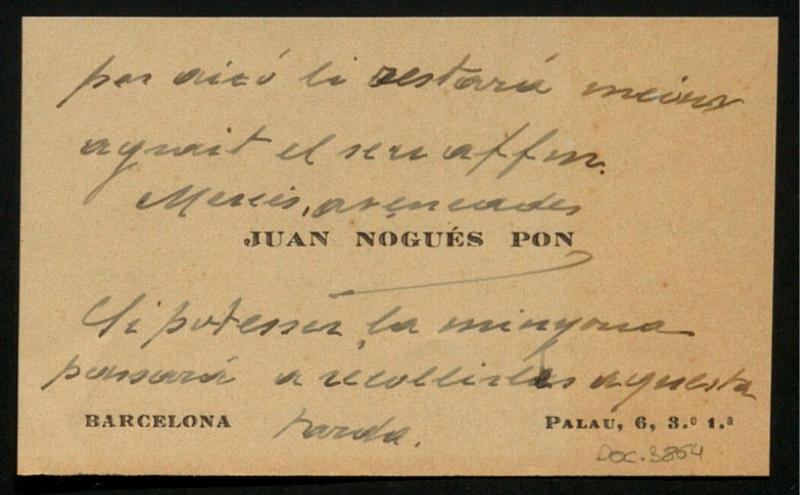 per aixó li restará
agrait el seu affm.
Mercés, avençades
JUAN NOGUÉS PON
Si pot esser, la minyona
passará a recollirles aquesta
tarda.
BARCELONA
PALAU, 6, 3.º 1.ª
DOC. 3864